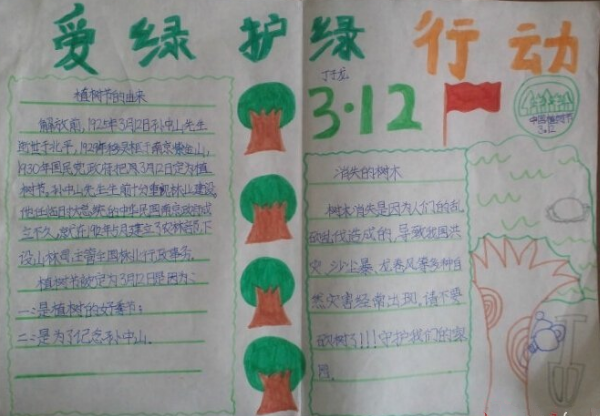 爱绿护绿行动
丁于龙
3·12
中国植树节
3.12
植树节的由来
解放前,1925年3月12日孙中山先生
逝世于北平,1929年
1930年国民党政府把每3月12日定为植
树节。孙中山先生生前十分重视林业建设
他任临时大总统的中华民国南京政府成
立不久,就在 年5月建立了农林部,下
设山林司,主管全国林业行政事务。
植树节敞定为3月12日是因为:
一:是植树的好季节;
二:是为了纪念孙中山。
消失的树木
树木消失是因为人们的乱
砍乱伐造成的,导致我国洪
灾、沙尘暴、龙卷风等多种自
然灾害经常出现,请不要
砍树了!!!守护我们的家
园。